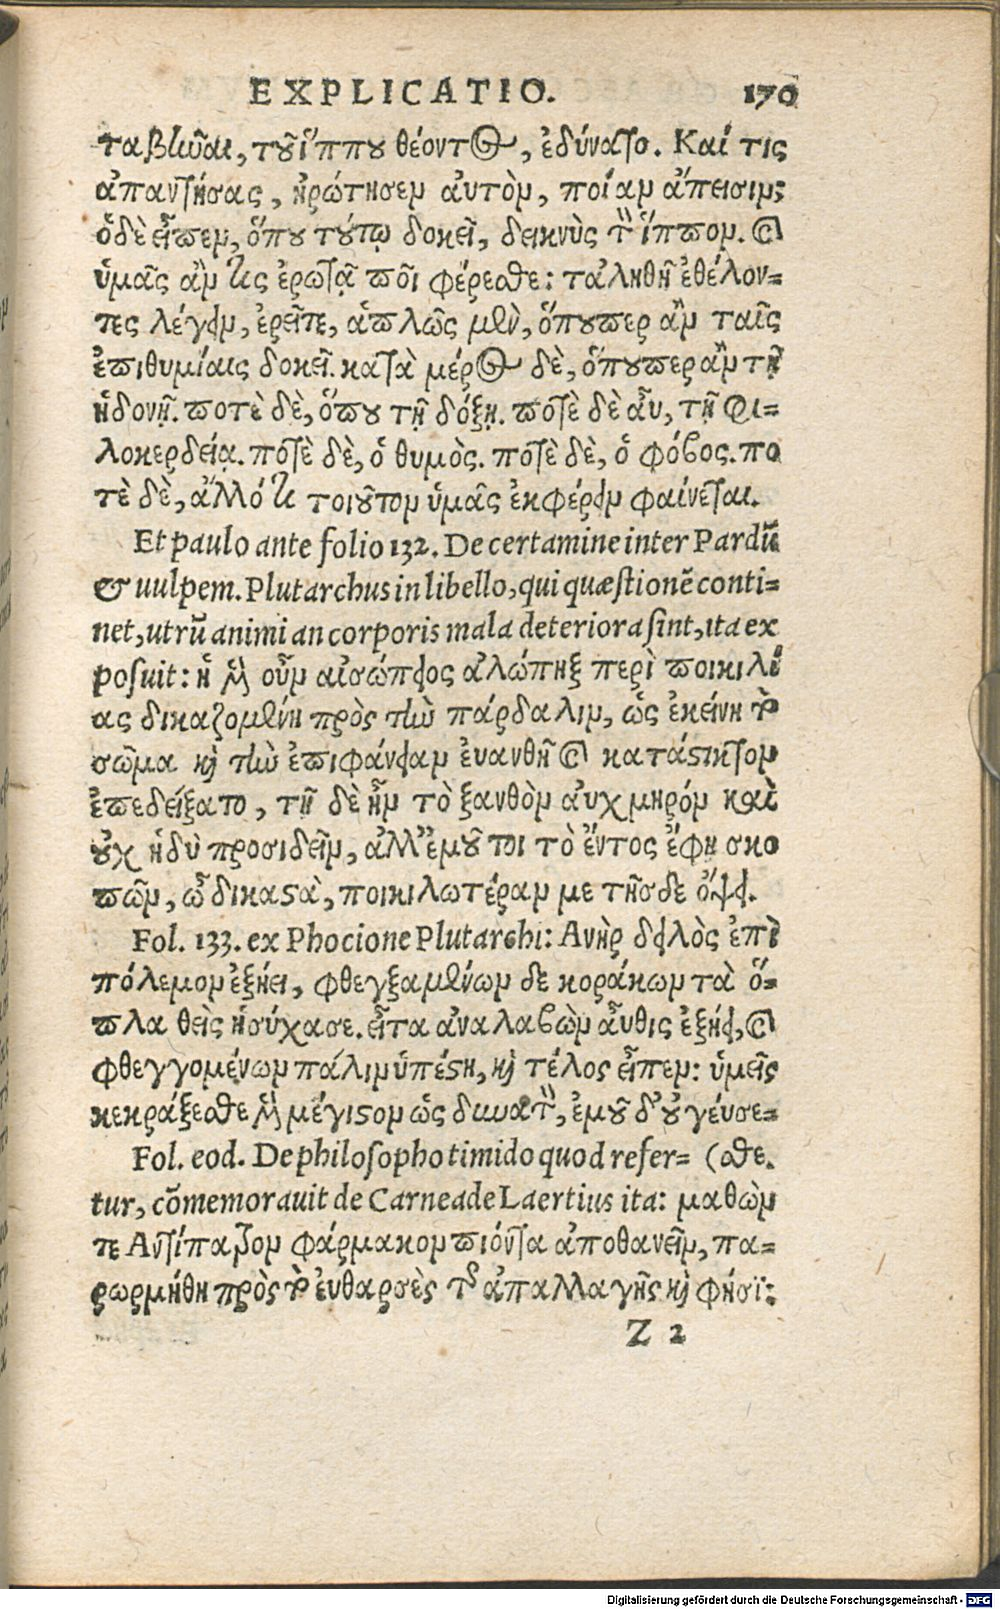 EXPLICATIO. 170
ταβῆναι, τοῦ ἵππου θέοντος, ἐδύνατο. Καί τις
ἀπαντήσας, ἠρώτησεν ἀυτὸν, ποίαν ἄπεισιν;
ὅδὲ εἶπεν, ὅπου τούτῳ δοκεῖ, δεικνὺς τὸν ἵππον. καὶ
ὑμᾶς ἂν τις ἐρωτᾷ ποῖ φέρεσθε: τἀληθῆ ἐθέλον-
τες λέγειν, ἐρεῖτε, ἁπλῶς μὲν, ὅπουπερ ἂν ταῖς
ἐπιθυμίαις δοκεῖ. κατὰ μέρος δὲ, ὅπουπερ ἂν τῇ
ἡδονῇ. ποτὲ δὲ, ὅπου τῇ δόξῃ. ποτὲ δὲ αὖ, τῇ φι-
λοκερδείᾳ. ποτὲ δὲ, ὁ θυμὸς. ποτὲ δὲ, ὁ φόβος. πο
τὲ δὲ, ἄλλό τι τοιοῦτον ὑμᾶς ἐκφέρειν φαίνεται.
Et paulo ante folio 132. De certamine inter Pardũ
& uulpem. Plutarchus in libello, qui quæstionẽ conti-
net, utrũ animi an corporis mala deteriora sint, ita ex
posuit: ἡ μὲν οὖν αἰσώπειος ἀλώπηξ περὶ ποικιλί
ας δικαζομένη πρὸς τὴν πάρδαλιν, ὡς ἐκείνη τὸ
σῶμα καὶ τὴν ἐπιφάνειαν ἐυανθῆ καὶ κατάστικτον
ἐπεδείξατο, τῇ δὲ ἦν τὸ ξανθὸν ἀυχμηρόν καὶ
οὐχ ἡδὺ προσιδεῖν, ἀλλ' ἐμοῦ τοι τὸ ἔντος ἔφη σκο
πῶν, ὦ δικαστὰ, ποικιλωτέραν με τῆσδε ὄψει.
Fol. 133. ex Phocione Plutarchi: Ανὴρ δειλὸς ἐπὶ
πόλεμον ἐξῄει, φθεγξαμένων δε κοράκων τὰ ὅ-
πλα θεὶς ἡσύχασε. εἶτα ἀναλαβὼν αὖθις ἐξῄει, καὶ
φθεγγομένων πάλιν ὑπέστη, καὶ τέλος εἶπεν: ὑμεῖς
κεκράξεσθε μὲν μέγιστον ὡς δυνατὸν, ἐμοῦ δ' οὐ γέυσε-
Fol. eod. De philosopho timido quod refer- (σθε.
tur, cõmemorauit de Carneade Laertius ita: μαθὼν
τε Αντίπατρον φάρμακον πιόντα ἀποθανεῖν, πα-
ρωρμήθη πρὸς τὸ ἐυθαρσὲς τῆς ἀπαλλαγῆς καὶ φησί:
Z 2
Digitalisierung gefördert durch die Deutsche Forschungsgemeinschaft - DFG